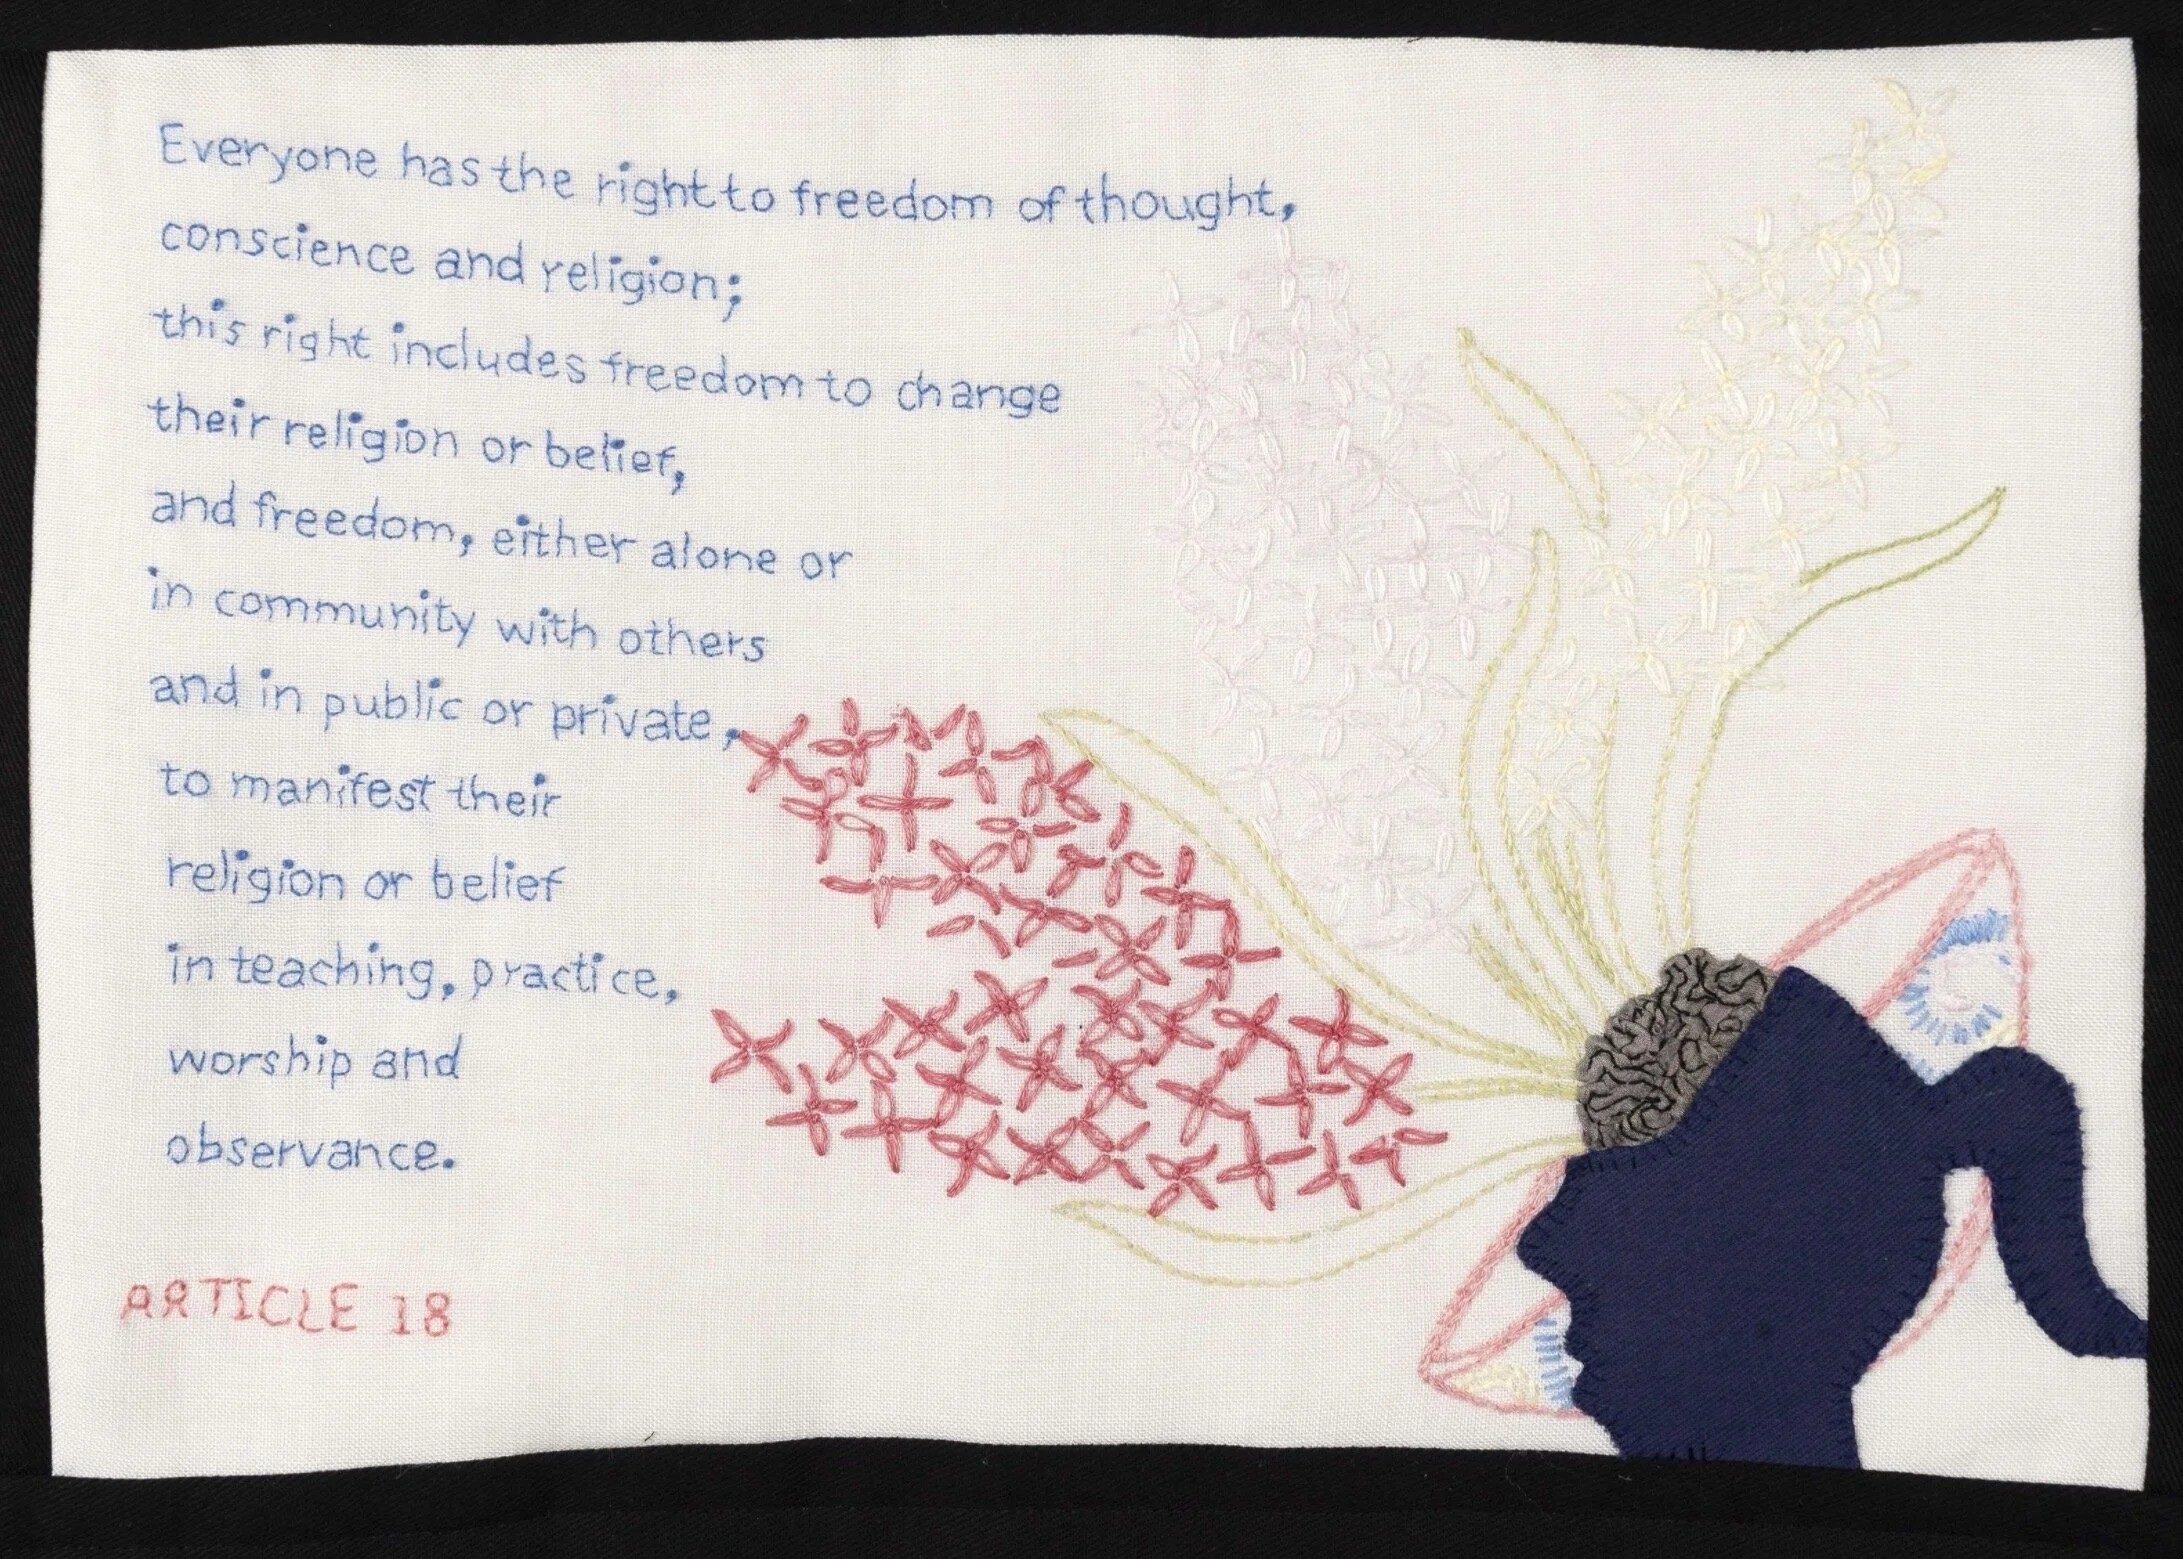 Everyone has the right to freedom of thought,
conscience and religion;
this right includes freedom to change
their religion or belief,
and freedom, either alone or
in community with others
and in public or private,
to manifest their
religion or belief
in teaching, practice,
worship and
observance.
ARTICLE 18